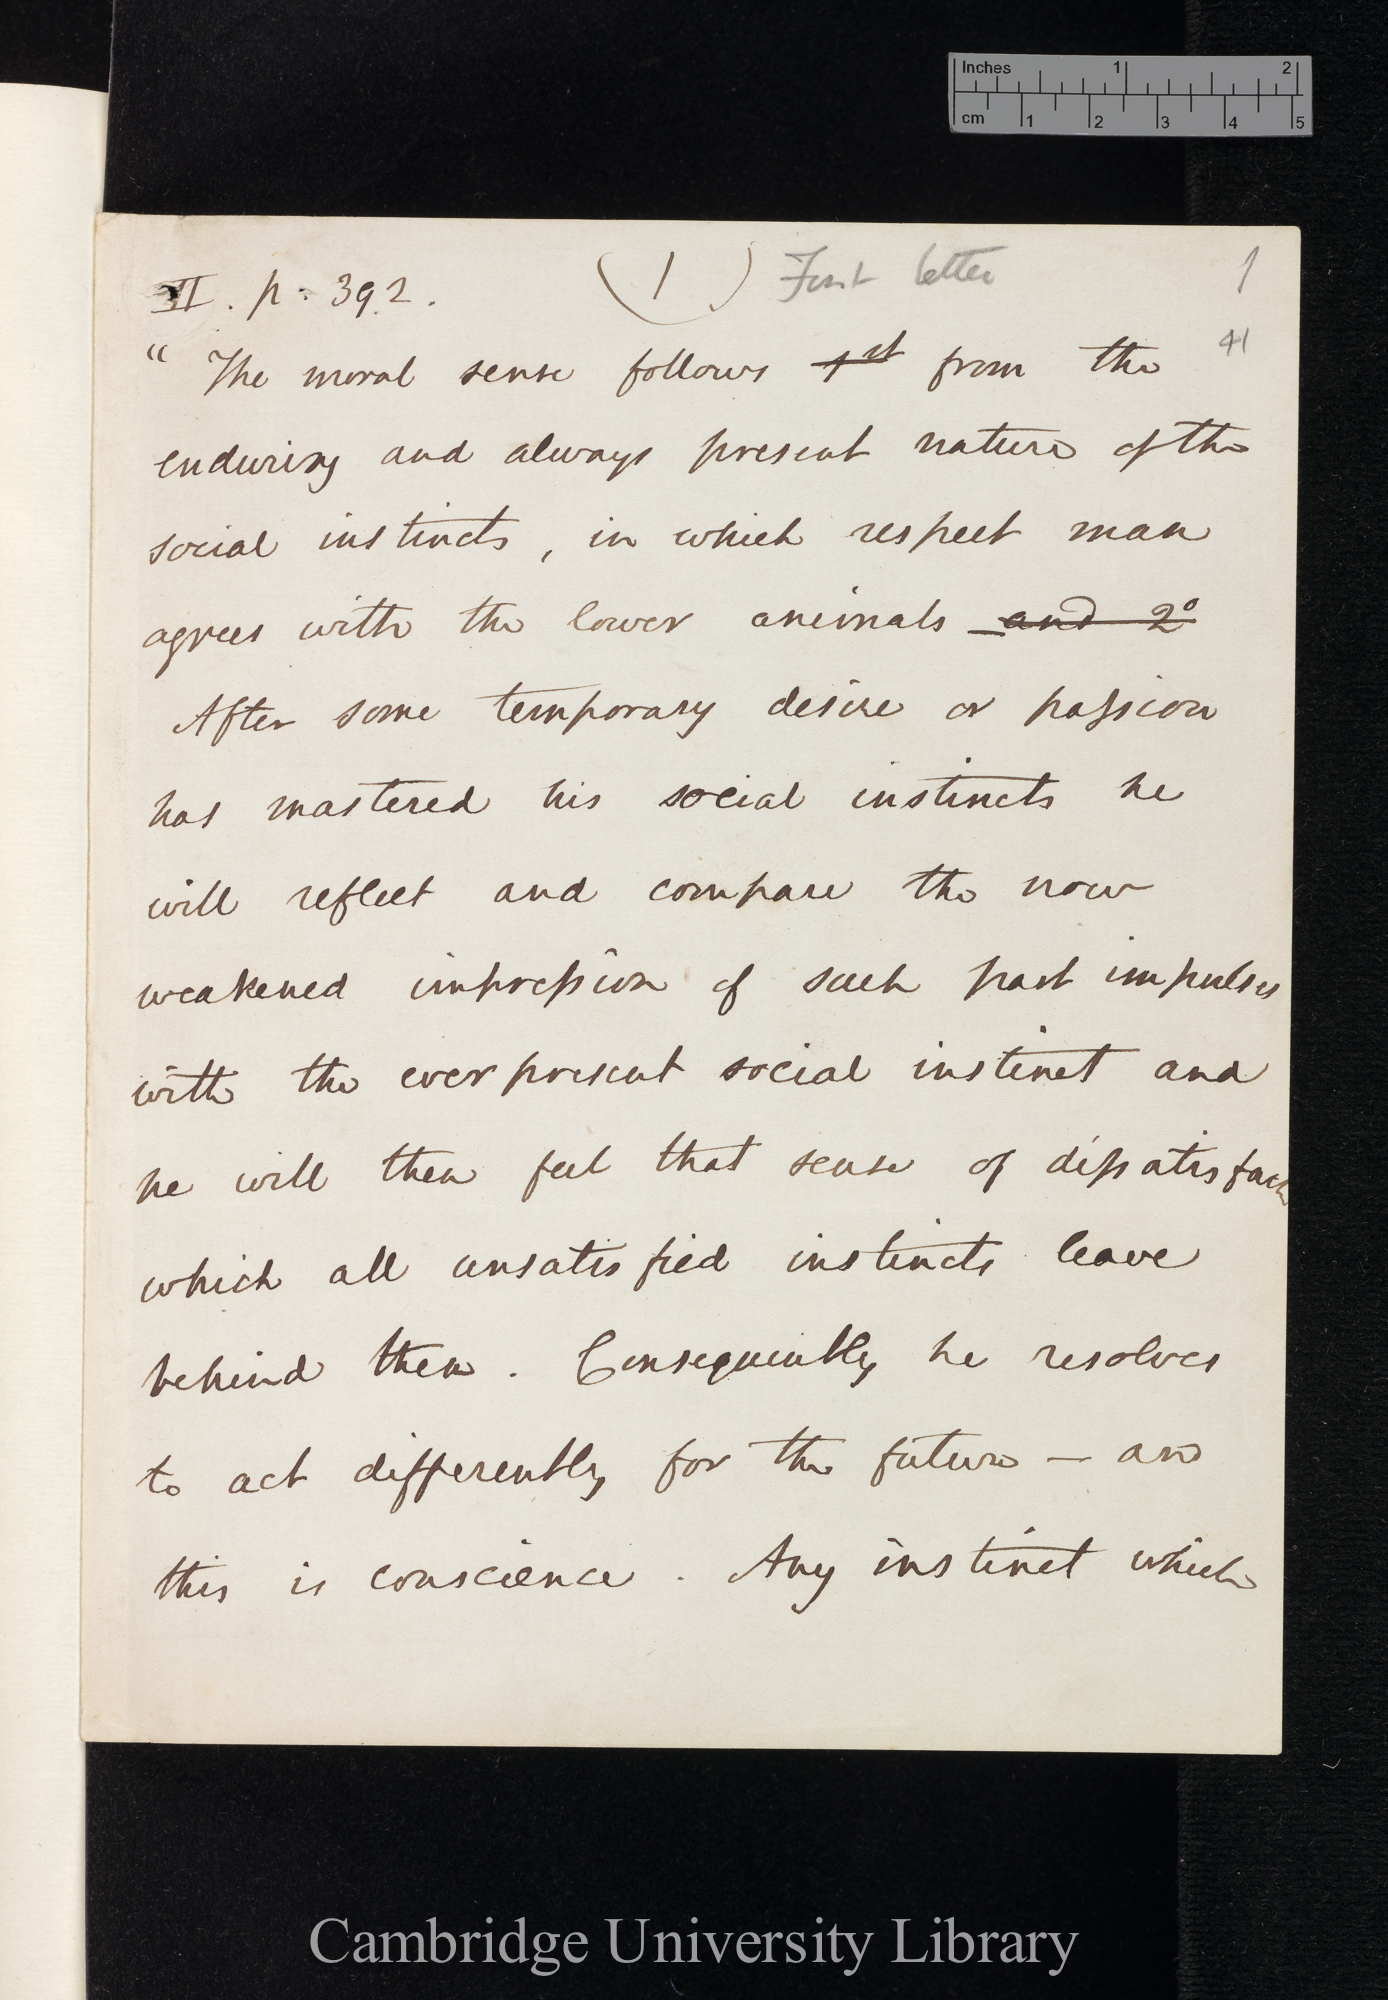 Inches 1 2
cm 1 2 3 4 5
II. p. 392. (1) First letter 1
41
"The moral sense follows 1st from the
enduring and always present nature of the
social instincts, in which respect man
agrees with the lower animals and 2°
After some temporary desire or passion
has mastered his social instincts he
will reflect and compare the now
weakened impression of such past impulses
with the ever present social instinct and
he will then feel that sense of dissatisfact
which all unsatisfied instincts leave
behind them. Consequently he resolves
to act differently for the future — and
this is conscience. Any instinct which
Cambridge University Library